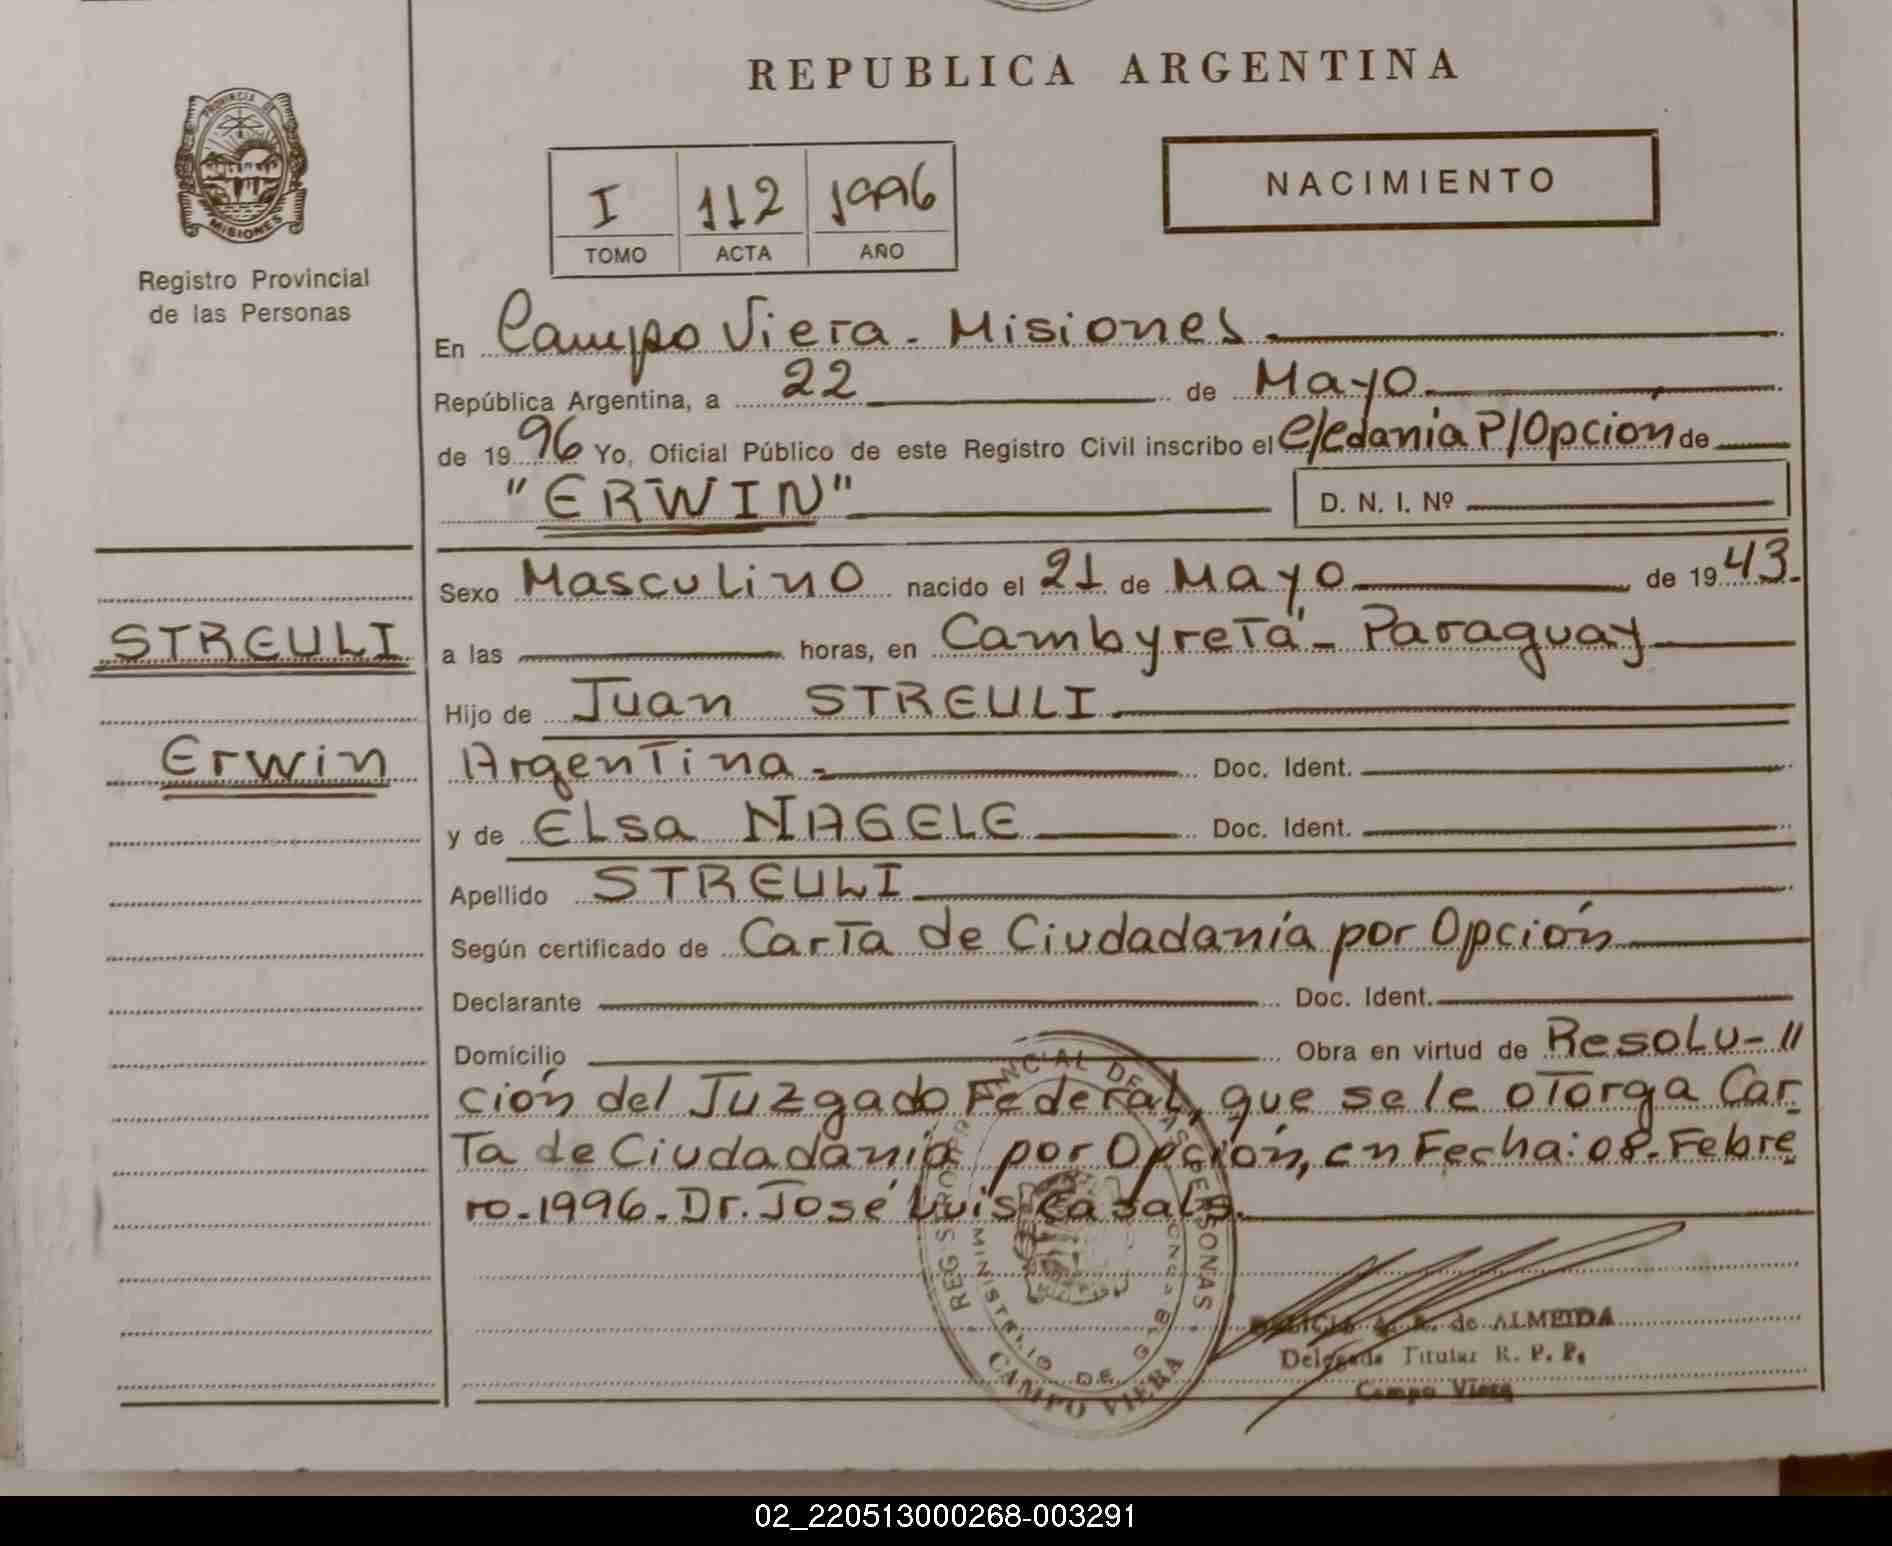 REPUBLICA ARGENTINA
PROVINCIA DE
MISIONES
Registro Provincial
de las Personas
NACIMIENTO
I 112 1996
TOMO ACTA AÑO
En Campo Viera - Misiones
República Argentina, a 22 de Mayo
de 1996 Yo, Oficial Público de este Registro Civil inscribo el C/cdanía P/Opcion de
"ERWIN" D. N. I. Nº
Sexo Masculino nacido el 21 de Mayo de 1943.
STREULI
a las horas, en Cambyretá - Paraguay
Hijo de Juan STREULI
Erwin
Argentina Doc. Ident.
y de Elsa NAGELE Doc. Ident.
Apellido STREULI
Según certificado de Carta de Ciudadanía por Opción
Declarante Doc. Ident.
Domicilio Obra en virtud de Resolu-"
ción del Juzgado Federal, que se le otorga Car-
ta de Ciudadanía por Opción, en Fecha: 08-Febre
ro-1996. Dr. José Luis Casals.
DE PERSONAS
MINISTERIO DE
CAMPO VIERA
de ALMEIDA
Delegada Titular R. P. P.
Campo Viera
02_220513000268-003291